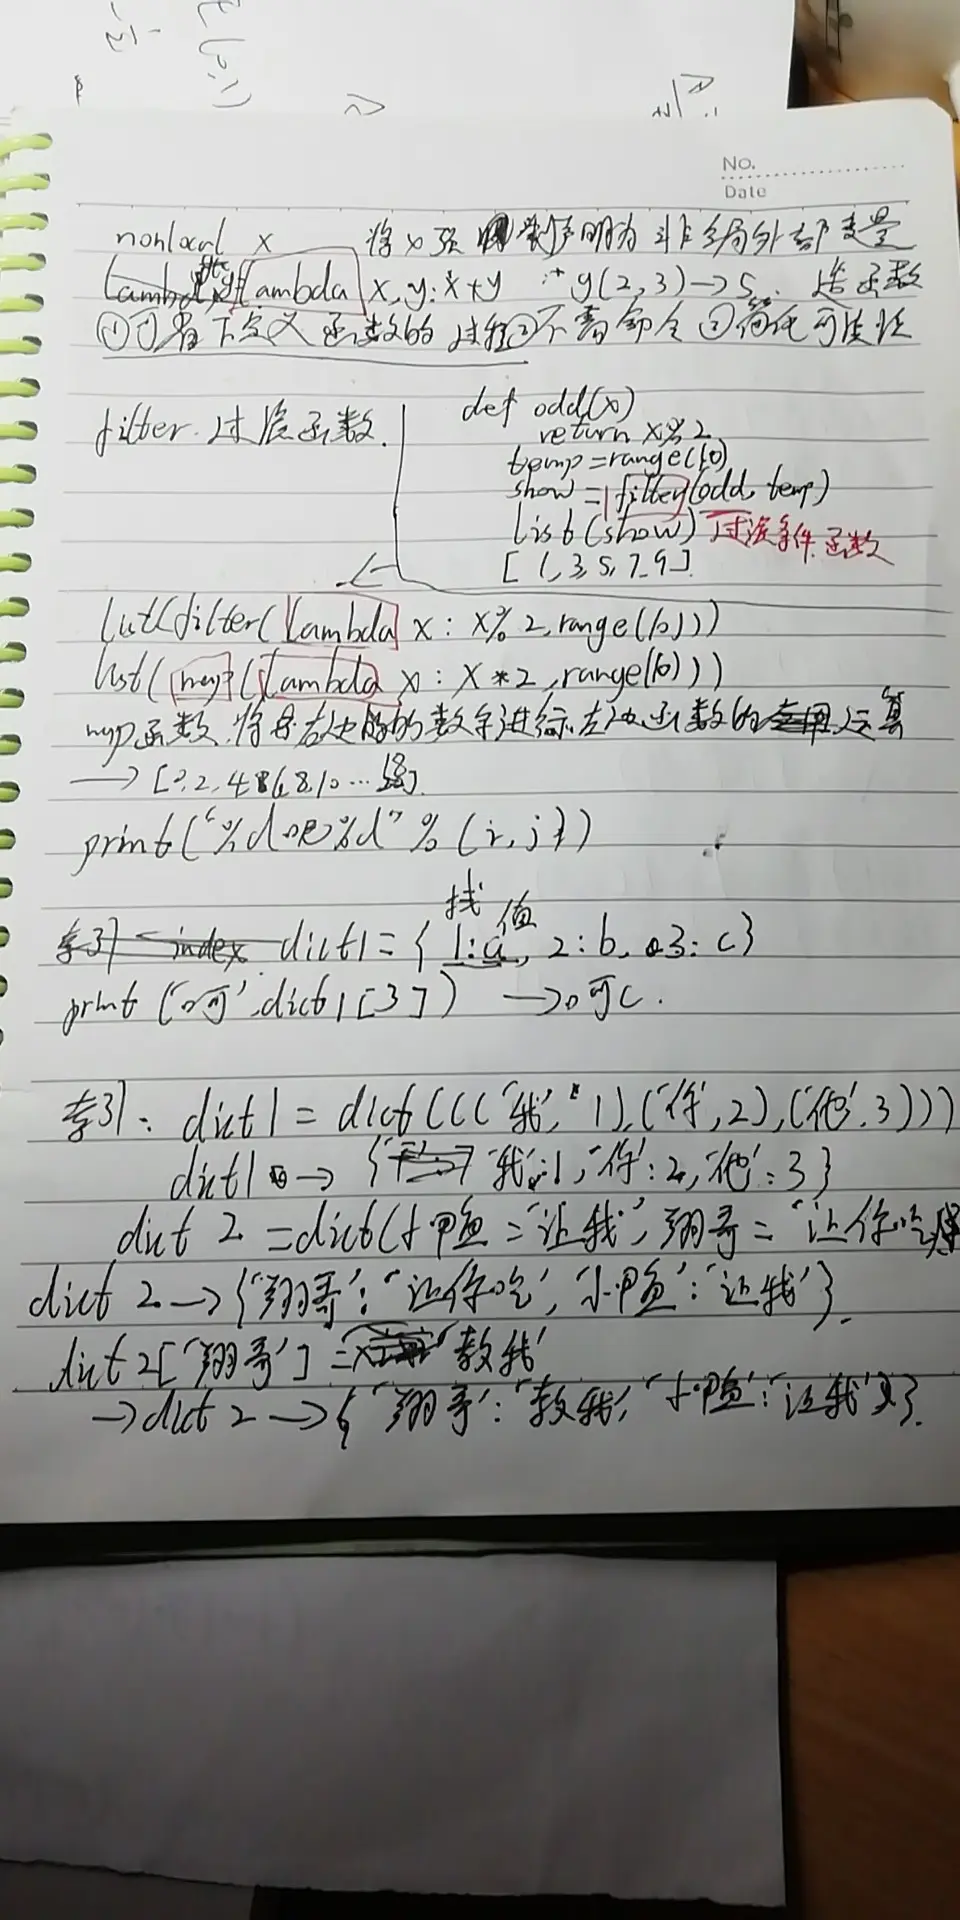 No.
Date
nonlocal x 将x强制声明为非全局外部变量
lambda x,y:x+y y(2,3)→5. 函数
①可省下定义函数的过程②不需命令③简化可读性
filter.过滤函数.
def odd(x)
return x%2
temp=range(10)
show=filter(odd,temp)
list(show) 过滤条件函数
[1,3,5,7,9]
list(filter(lambda x:x%2,range(10)))
list(map(lambda x:x*2,range(10)))
map函数.将右边的数字进行左边函数的运算
→[0,2,4,6,8,10…18].
print("%d %d"%(i,j))
找 值
dict1={1:a,2:b,3:c}
print( ,dict1[3]) → c.
索引: dict1=dict((('我',1),('你',2),('他',3)))
dict1→{'我':1,'你':2,'他':3}
dict2=dict(小甲鱼='让我',翔哥='让你吃
dict2→{'翔哥':'让你吃','小甲鱼':'让我'}.
dict2['翔哥']='教我'
→dict2→{'翔哥':'教我','小甲鱼':'让我'}.